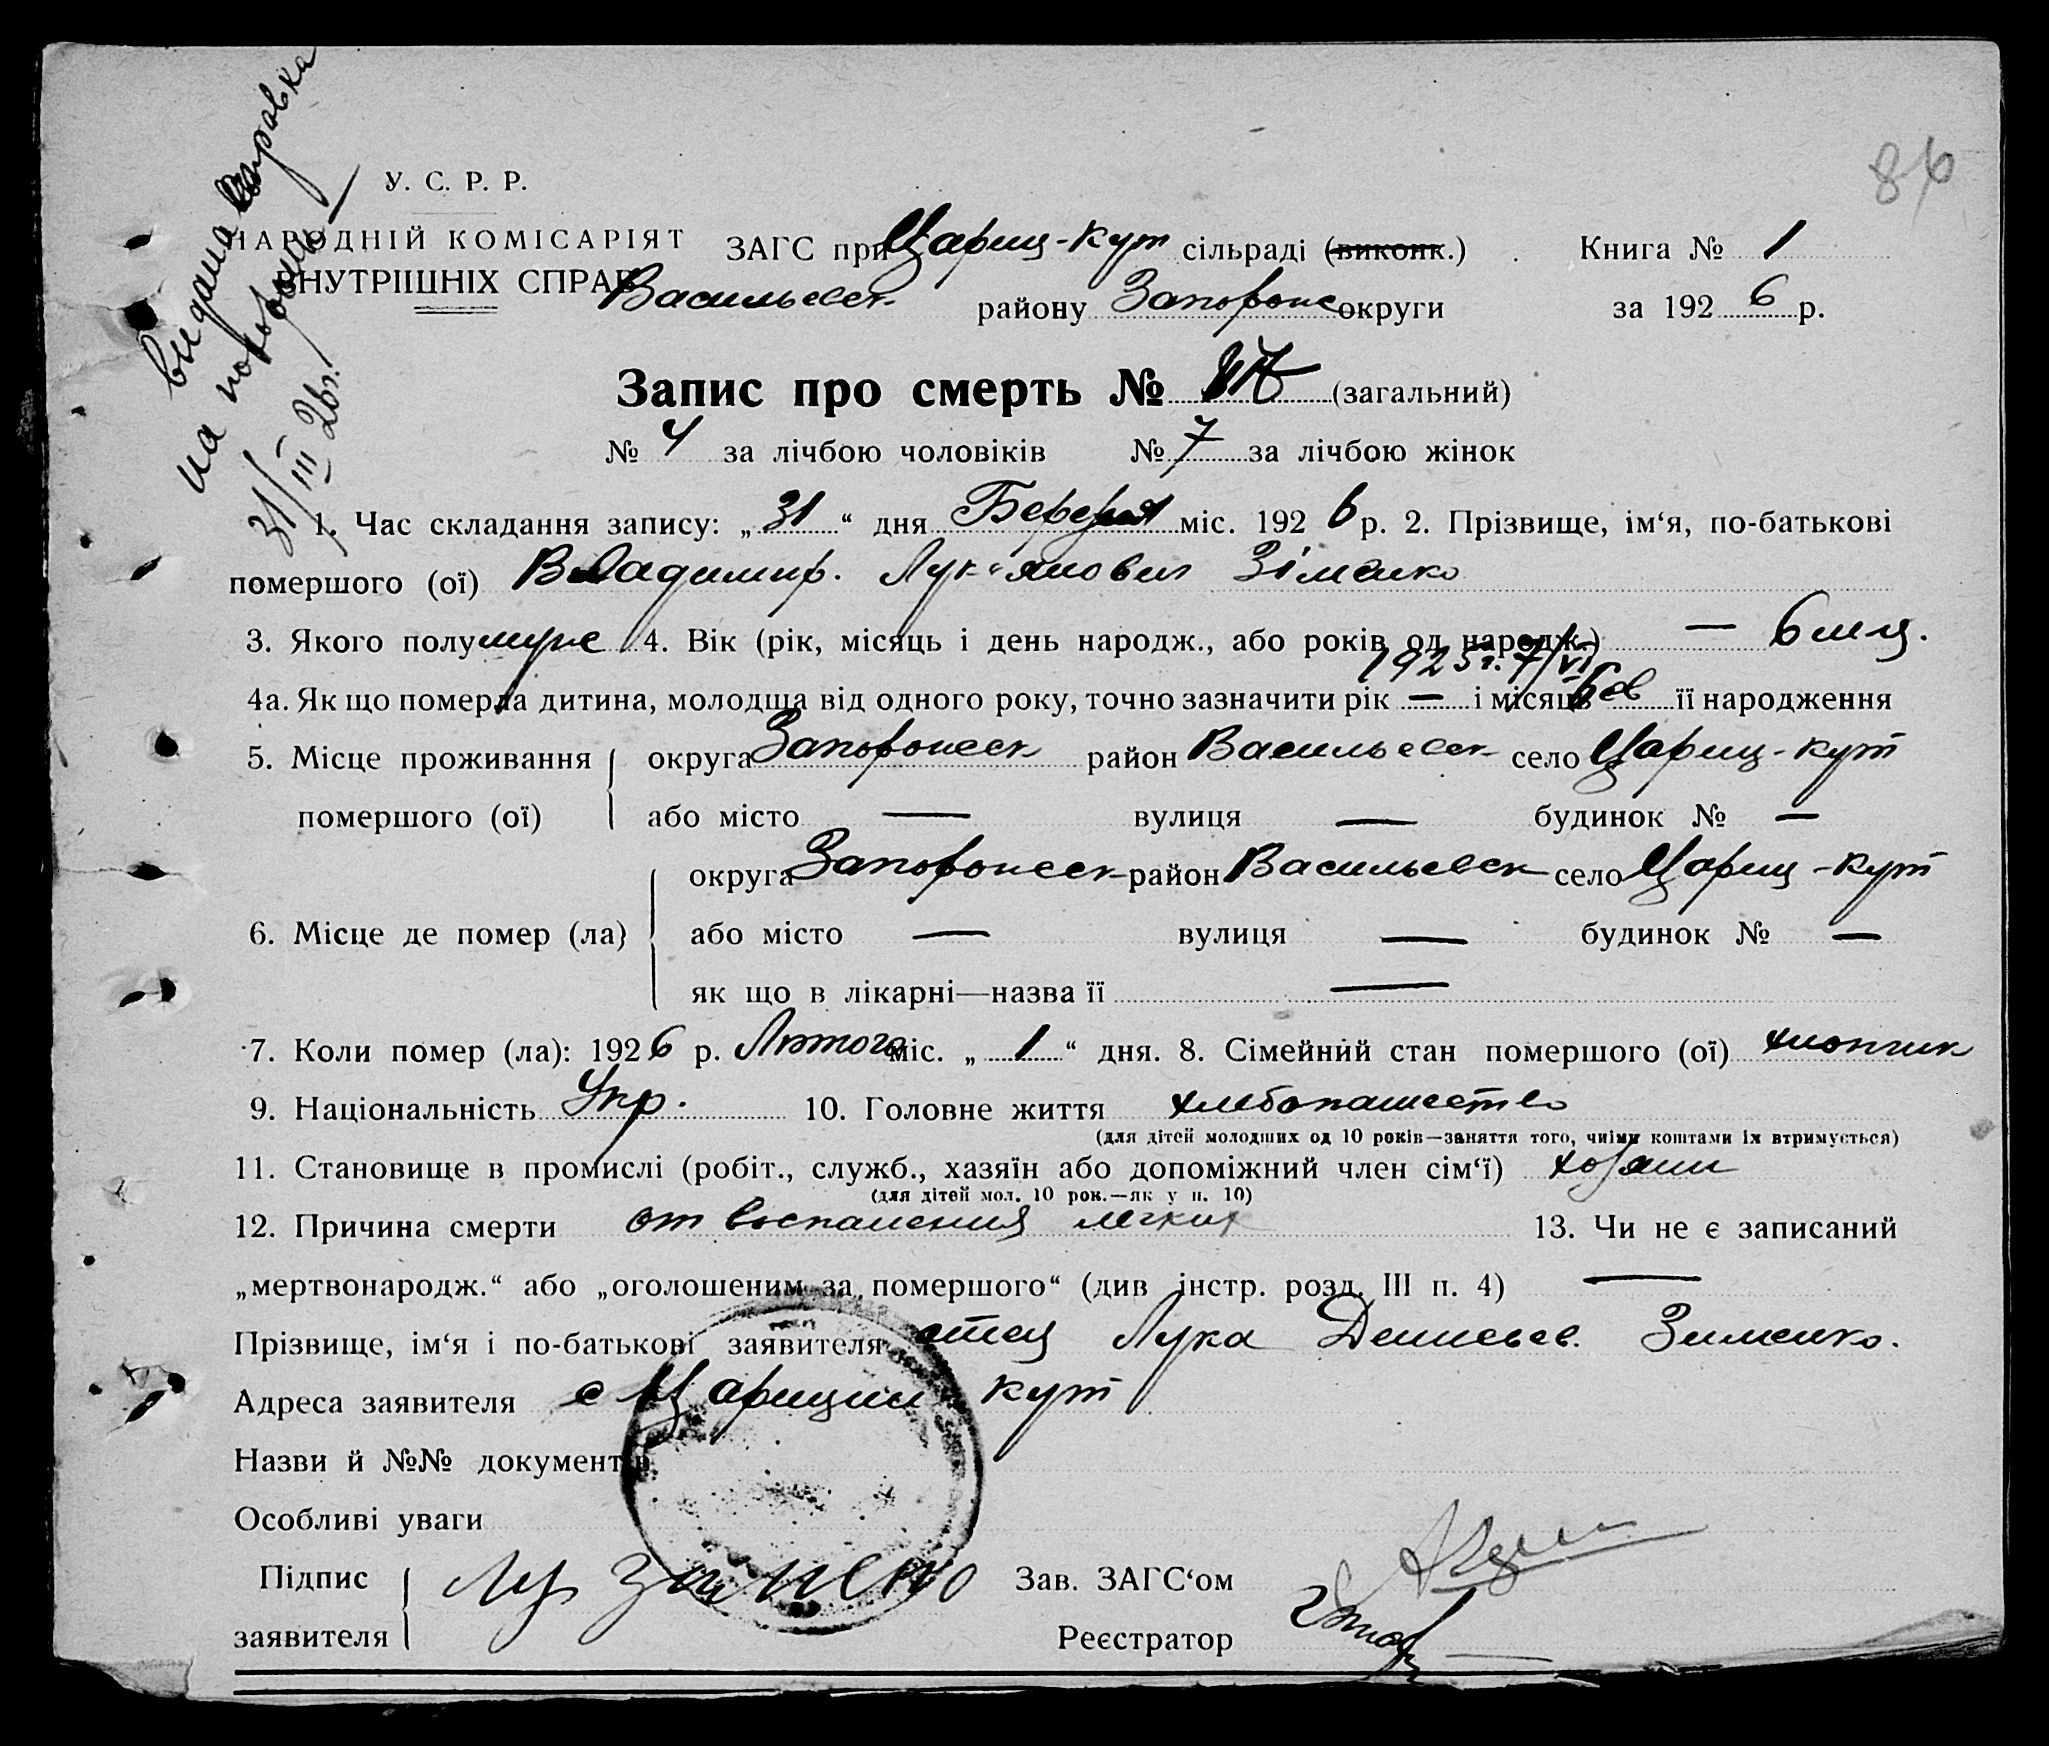 видана справка
на похорон
31/III 26 г.
86
У. С. Р. Р.
НАРОДНІЙ КОМІСАРІЯТ
ВНУТРІШНІХ СПРАВ
ЗАГС при Цариц-Кут сільраді (виконк.) Книга № 1
Васильевск. району Запорожс округи за 1926 р.
Запис про смерть № (загальний)
№ 4 за лічбою чоловіків № 7 за лічбою жінок
1. Час складання запису: „31“ дня міс. 1926 р. 2. Прізвище, ім‘я, по-батькові
помершого (ої) Владимир. Лук‘янович Зіменко
3. Якого полу муже 4. Вік (рік, місяць і день народж., або років од народж.) — 6 мц.
1925 г. 7/VI
4а. Як що померла дитина, молодша від одного року, точно зазначити рік — і місяць її народження
5. Місце проживання округа Запорожеск район Васильевск село Цариц-кут
помершого (ої) або місто — вулиця — будинок № —
округа Запорожеск район Васильевск село Цариц-кут
6. Місце де помер (ла) або місто — вулиця — будинок № —
як що в лікарні—назва її —
7. Коли помер (ла): 1926 р. Лютого міс. „1“ дня. 8. Сімейний стан помершого (ої) хлопчик
9. Національність Укр. 10. Головне життя хлебопашество
(для дітей молодших од 10 років—заняття того, чиїми коштами їх втримується)
11. Становище в промислі (робіт., служб., хазяїн або допоміжний член сім‘ї) хозяин
(для дітей мол. 10 рок.—як у п. 10)
12. Причина смерти от воспаления легких 13. Чи не є записаний
„мертвонародж.“ або „оголошеним за помершого“ (див інстр. розд. III п. 4) —
Прізвище, ім‘я і по-батькові заявителя отец Лука Денисьев. Зименко.
Адреса заявителя с Царицин кут
Назви й №№ документів
Особливі уваги
Підпис Лу Зименко Зав. ЗАГС‘ом
заявителя Реєстратор